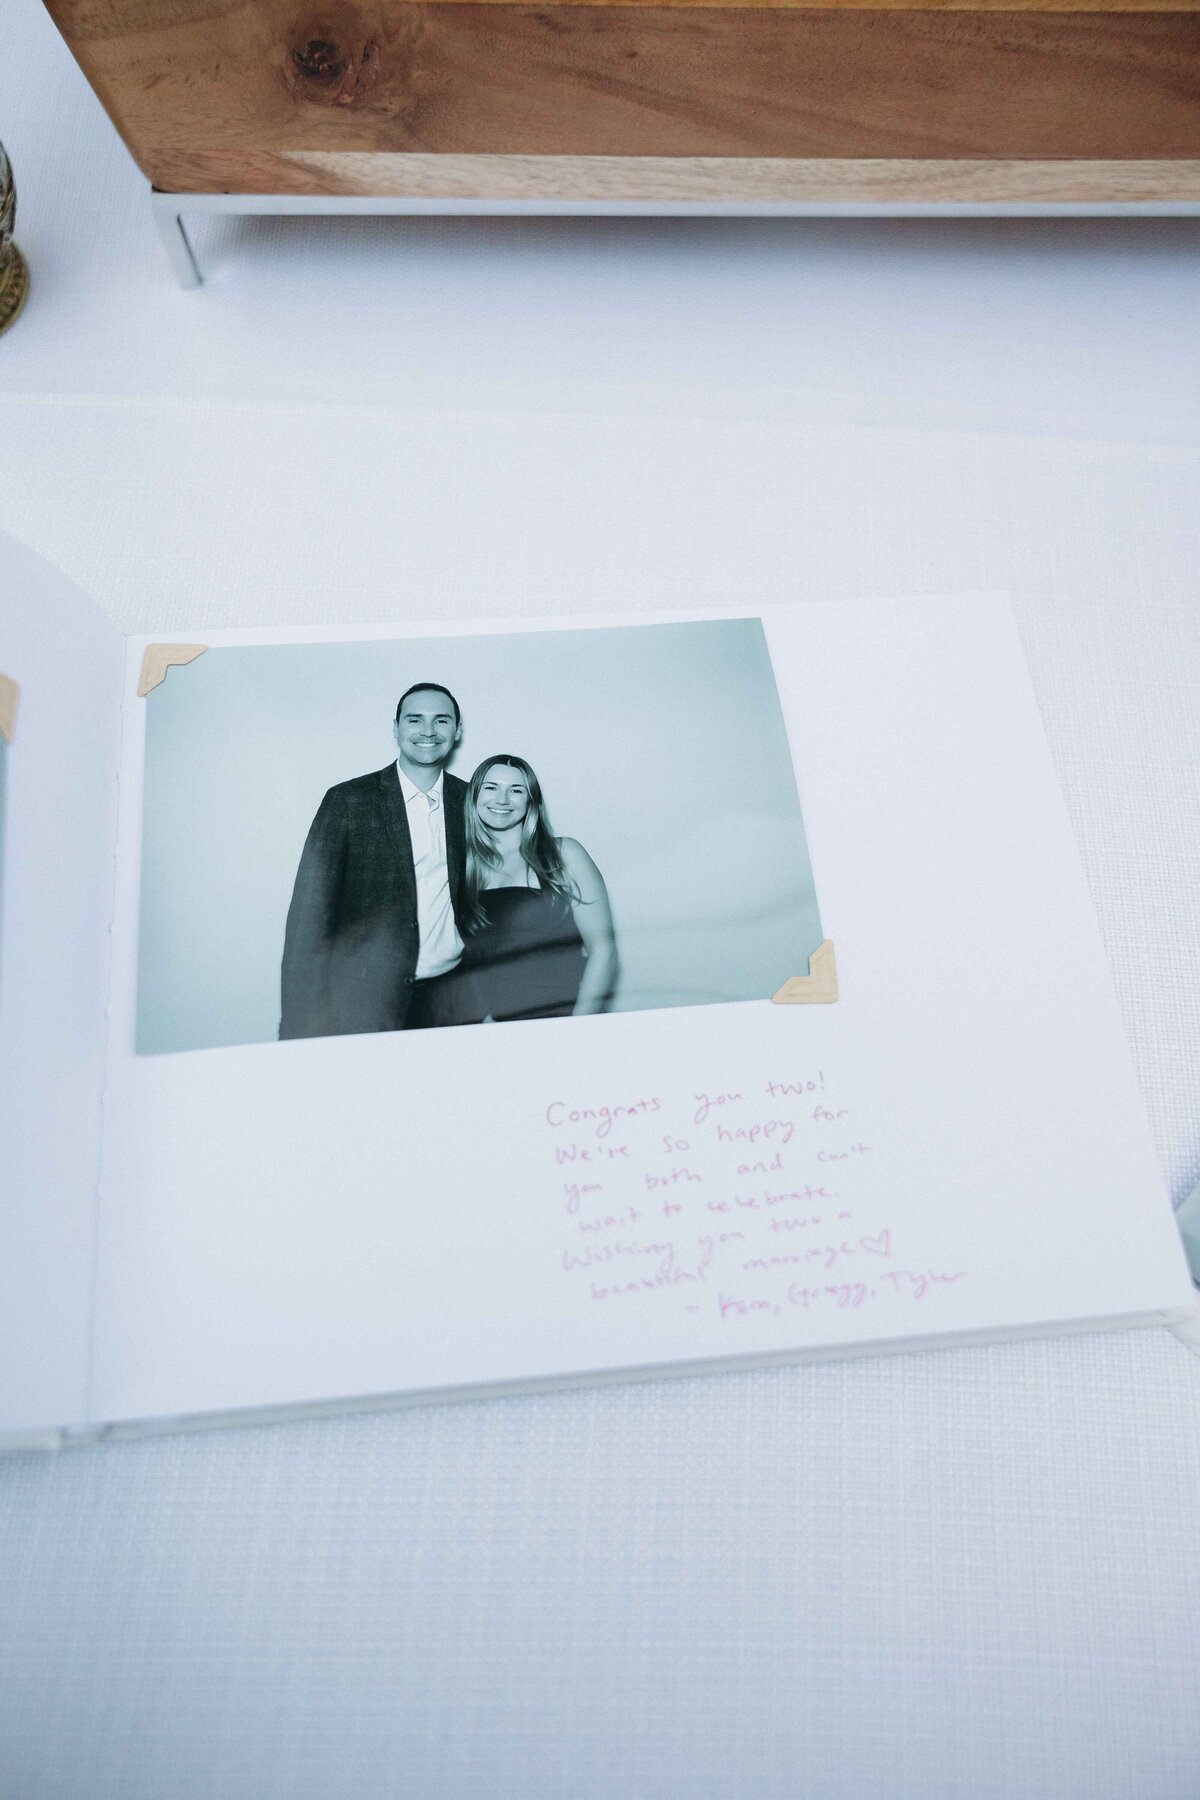 Congrats you two!
We're so happy for
you both and can't
wait to celebrate.
Wishing you two a
beautiful marriage ♡
- Kara, Gregg, Tyler